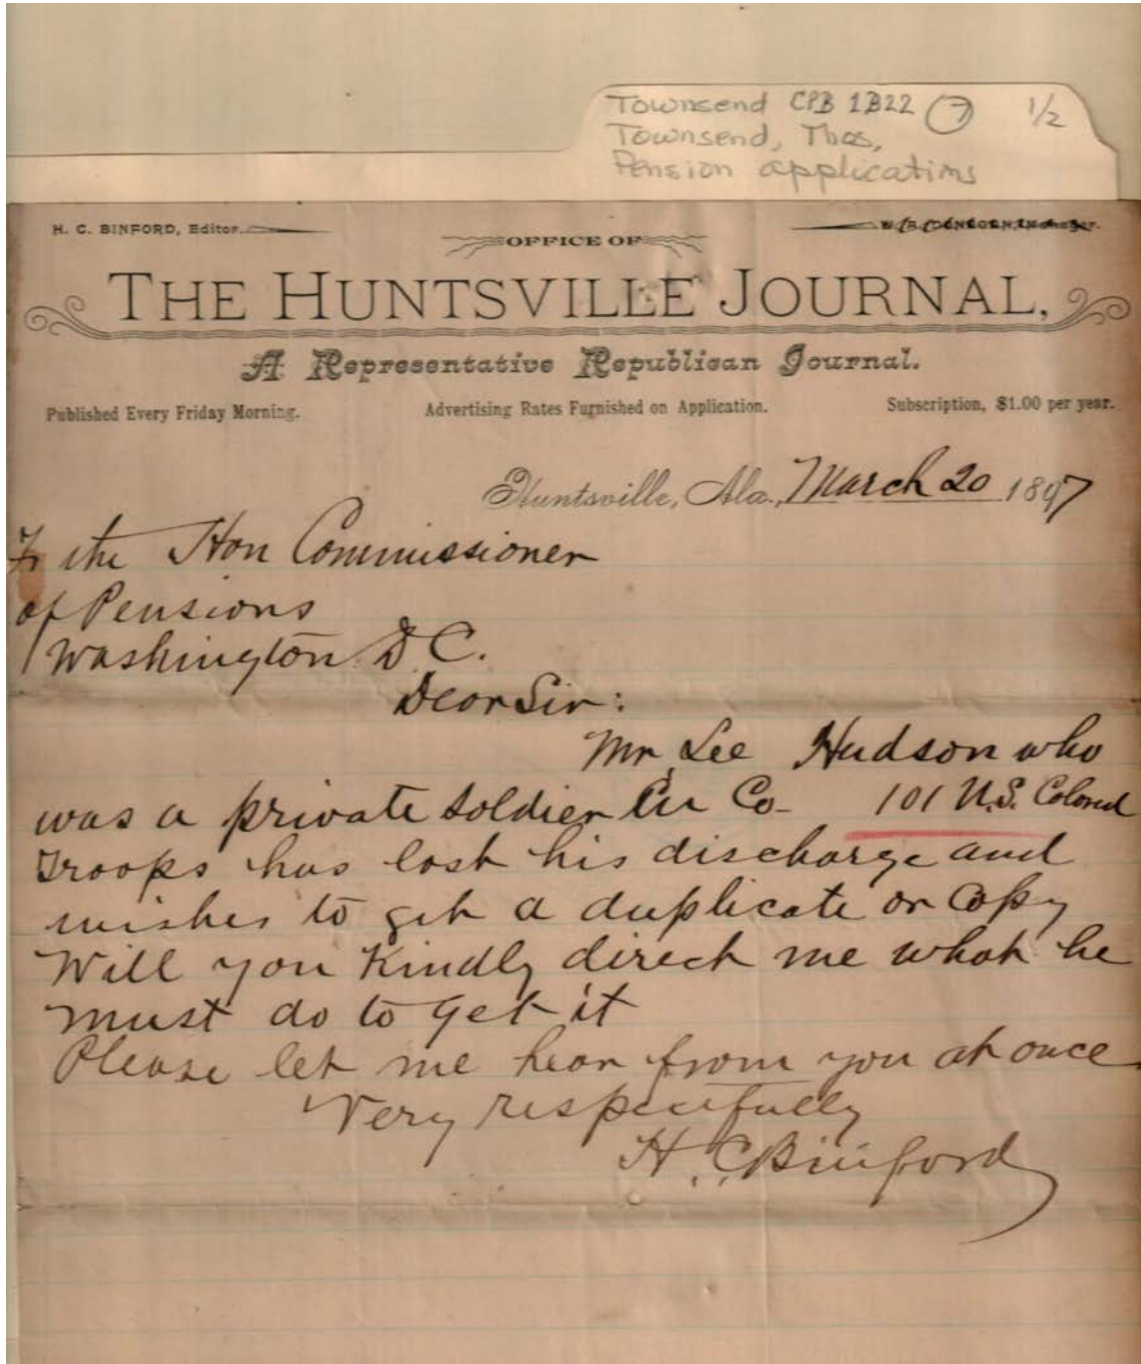 Townsend CPB 1B22 7 1/2
Townsend, Thos,
Pension applications
H. C. BINFORD, Editor.
OFFICE OF
THE HUNTSVILLE JOURNAL,
A Representative Republican Journal.
Published Every Friday Morning. Advertising Rates Furnished on Application. Subscription, $1.00 per year.
Huntsville, Ala., March 20 1897
To the Hon Commissioner
of Pensions
Washington D C.
Dear Sir:
Mr Lee Hudson who
was a private soldier in Co 101 U.S. Colored
Troops has lost his discharge and
wishes to get a duplicate or copy
Will you Kindly direct me what he
must do to get it
Please let me hear from you at once
Very respectfully
H. C. Binford